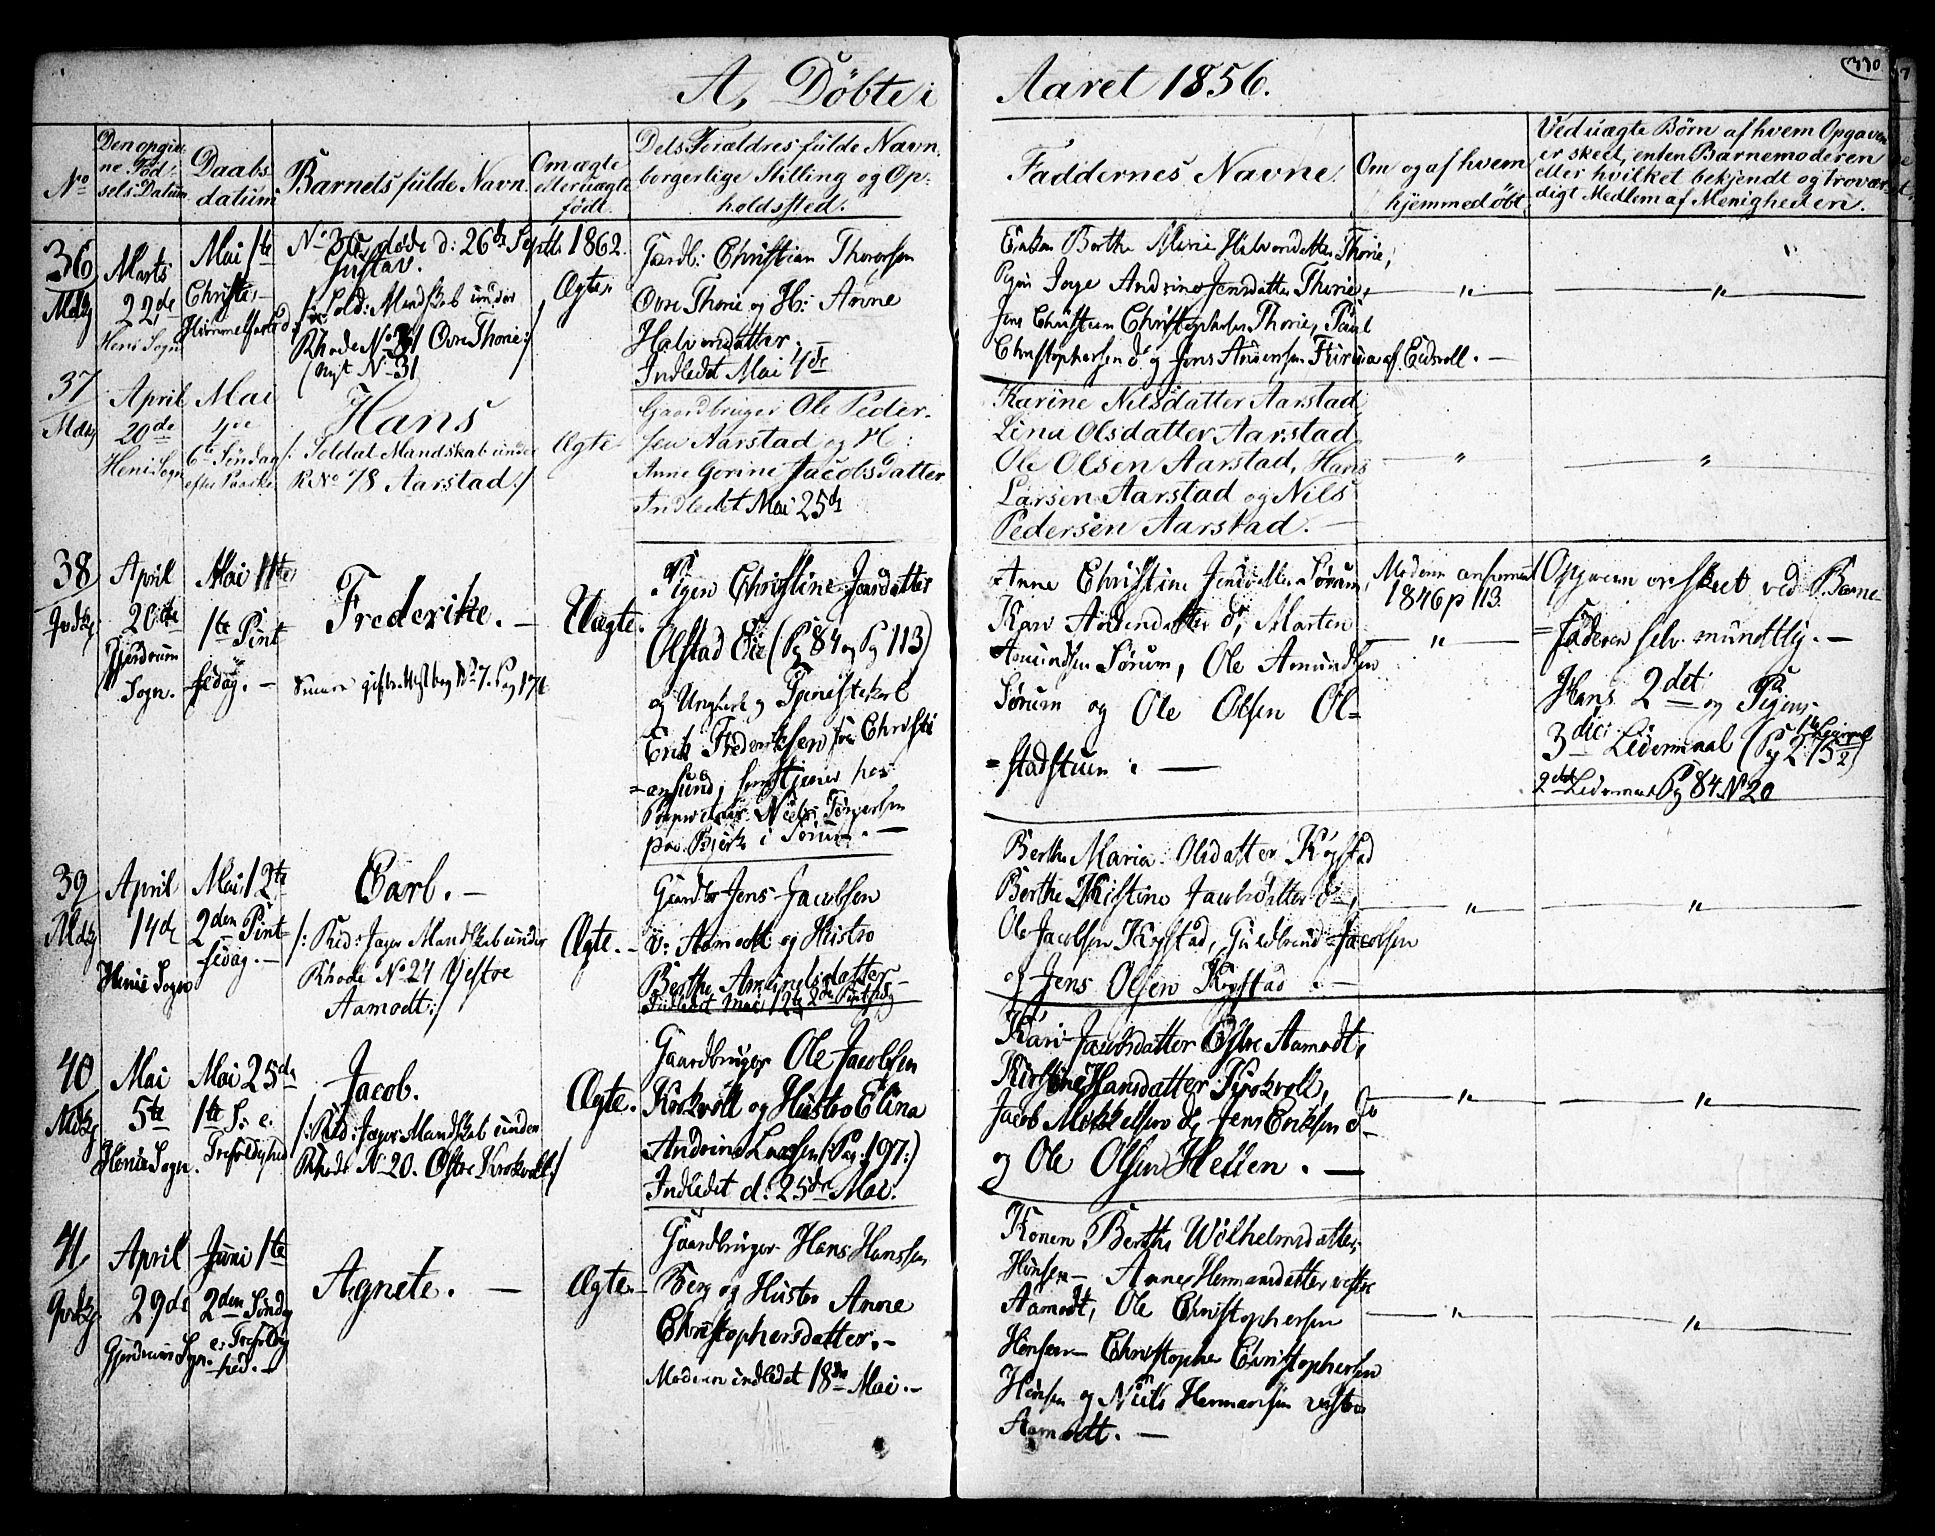 330
A, Døbte i Aaret 1856.
No
Den opgivne Fødselsdatum
Daabsdatum
Barnets fulde Navn.
Om ægte eller uægte født.
Dets Forældres fulde Navn, borgerlige Stilling og Opholdssted.
Faddernes Navne.
Om og af hvem hjemmedøbt.
Ved uægte Børn af hvem Opgaven er skeet, enten Barnemoderen eller hvilket bekjendt og troværdigt Medlem af Menigheden.
36
Mdkj
Marts
22de
Heni Sogn
Mai 1te
Christi
Himmelfartsd:
No 36 døde d: 26de Septb: 1862.
Gustav.
/: Sold: Mandskab under
Rhode No 31 Øvre Thorie:/
(nyt No 31
Ægte
Gaardb: Christian Thorersen
Øvre Thorie og H: Anne
Halvorsdatter.
Indledet Mai 4de
Enken Berthe Marie Halvorsdatter Thorie,
Pigen Inge Andrine Jensdatter Thorie,
Jens Christian Christophersen Thorie, Paul
Christophersen do og Jens Andersen af Eidsvoll. —
— " —
— " —
37
Mdkj
April
20de
Heni Sogn
Mai
4de
6te Søndag
efter Paaske
Hans
/: Soldat Mandskab under
R No 78 Aarstad:/
Ægte
Gaardbruger Ole Pedersen Aarstad og H:
Anne Gorine Jacobsdatter
Indledet Mai 25de
Karine Nilsdatter Aarstad
Lina Olsdatter Aarstad
Ole Olsen Aarstad, Hans
Larsen Aarstad og Nils
Pedersen Aarstad. —
— " —
— " —
38
Qvdkj
April
20de
Gjerdrum
Sogn.
Mai 11te
1te Pintsedag. —
Frederike. —
Uægte.
Pigen Christine Jensdatter
Olstad Eie (Pg 84 og Pg 113)
og Ungkarl og Tjenestekarl
Erik Frederiksen fra Christiansund, som tjener hos
Niels
paa Bjerke i Sørum. —
Anne Christine Jensdatter Sørum,
Kari do, Marten
Amundsen Sørum, Ole Amundsen
Sørum og Ole Olsen Olstadstuen. —
Moderen
1846 p 113.
— " —
Opgaven er skeet ved Barnefaderen selv mundtlig. —
Hans 2det og Pigens
3die Leiermaal (Pg 275
2det Leiermaal Pg 84 No 20
39
Mdkj
April
14de
Henie Sogn
Mai 12te
2den Pintsedag. —
Carl. —
/: Rid: Jæger Mandskab under
Rhode No 27 Vestre
Aamodt:/
Ægte. —
Gaardbr Jens Jacobsen
v: Aamodt og Hustro
Berthe Amundsdatter
Indledet Mai 12te 2den Pintsdg
Berthe Maria Olsdatter Kogstad
Berthe Kristine Jacobsdatter do,
Ole Jacobsen Kogstad, Guldbrand Jacobsen
og Jens Olsen Kogstad. —
— " —
— " —
40
Mdkj
Mai
5te
Henie Sogn.
Mai 25de
1te S: e.
Trefoldighed
Jacob.
/: Rid: Jæger Mandskab under
Rhode No 20. Østre Krokvoll:/
Ægte.
Gaardbruger Ole Jacobsen
Krokvoll og Hustro Elina
Andrine Larsen (: Pag. 197:)
Indledet d: 25de Mai.
Kari Jacobsdatter Østre Aamodt,
Kirstine Hansdatter Krokvoll,
Jacob Mikkelsen do, Jens Eriksen do
og Ole Olsen Hellen. —
— " —
— " —
41
Qvdkj
April
29de
Gjerdrum Sogn.
Juni 1te
2den Søndag
e. Trefoldighed. —
Agnete. —
Ægte. —
Gaardbruger Hans Hanssen
Berg og Hustro Anne
Christophersdatter. —
Moderen indledet 18de Mai. —
Konen Berthe Wilhelmsdatter
Hønsen — Anne Hermansdatter vestre
Aamodt, Ole Christophersen
Hønsen — Christopher Christophersen
Hønsen og Niels Hermansen vestre
Aamodt. —
— " —
— " —